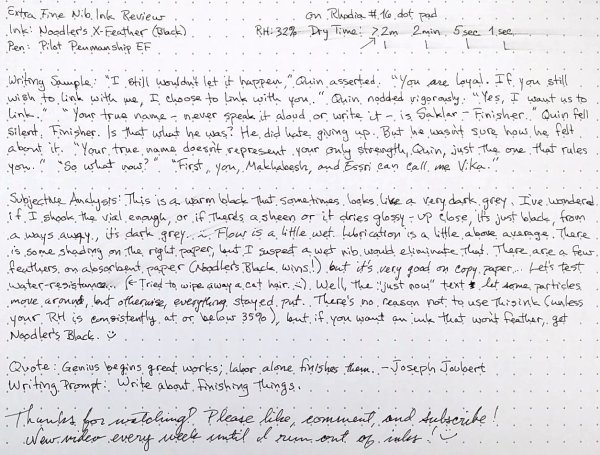 Extra Fine Nib Ink Review on Rhodia #16 dot pad
Ink: Noodler's X-Feather (Black) RH: 32% Dry Time: >2m 2min 5sec 1sec
Pen: Pilot Penmanship EF
Writing Sample: "I still wouldn't let it happen," Quin asserted. "You are loyal. If you still
wish to link with me, I choose to link with you." Quin nodded vigorously. "Yes, I want us to
link." "Your true name - never speak it aloud or write it - is Saklar - Finisher." Quin fell
silent. Finisher. Is that what he was? He did hate giving up. But he wasn't sure how he felt
about it. "Your true name doesn't represent your only strength, Quin, just the one that rules
you." "So what now?" "First, you, Makhabesh, and Essri can call me Vika."
Subjective Analysis: This is a warm black that sometimes looks like a very dark grey. I've wondered
if I shook the vial enough, or if there's a sheen or it dries glossy - up close, it's just black, from
a ways away, it's dark grey. Flow is a little wet. Lubrication is a little above average. There
is some shading on the right paper, but I suspect a wet nib would eliminate that. There are a few
feathers on absorbent paper (Noodler's Black wins!) but it's very good on copy paper. Let's test
water-resistance... (← Tried to wipe away a cat hair. ) Well, the "just now" text let some particles
move around, but otherwise, everything stayed put. There's no reason not to use this ink (unless
your RH is consistently at or below 35%), but if you want an ink that won't feather, get
Noodler's Black.
Quote: Genius begins great works; labor alone finishes them. - Joseph Joubert
Writing Prompt: Write about finishing things.
Thanks for watching! Please like, comment, and subscribe!
New video every week until I run out of inks!